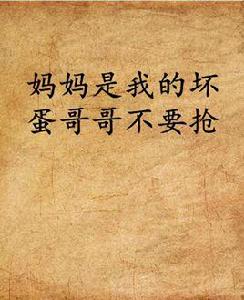 妈妈是我的坏
蛋哥哥不要抢